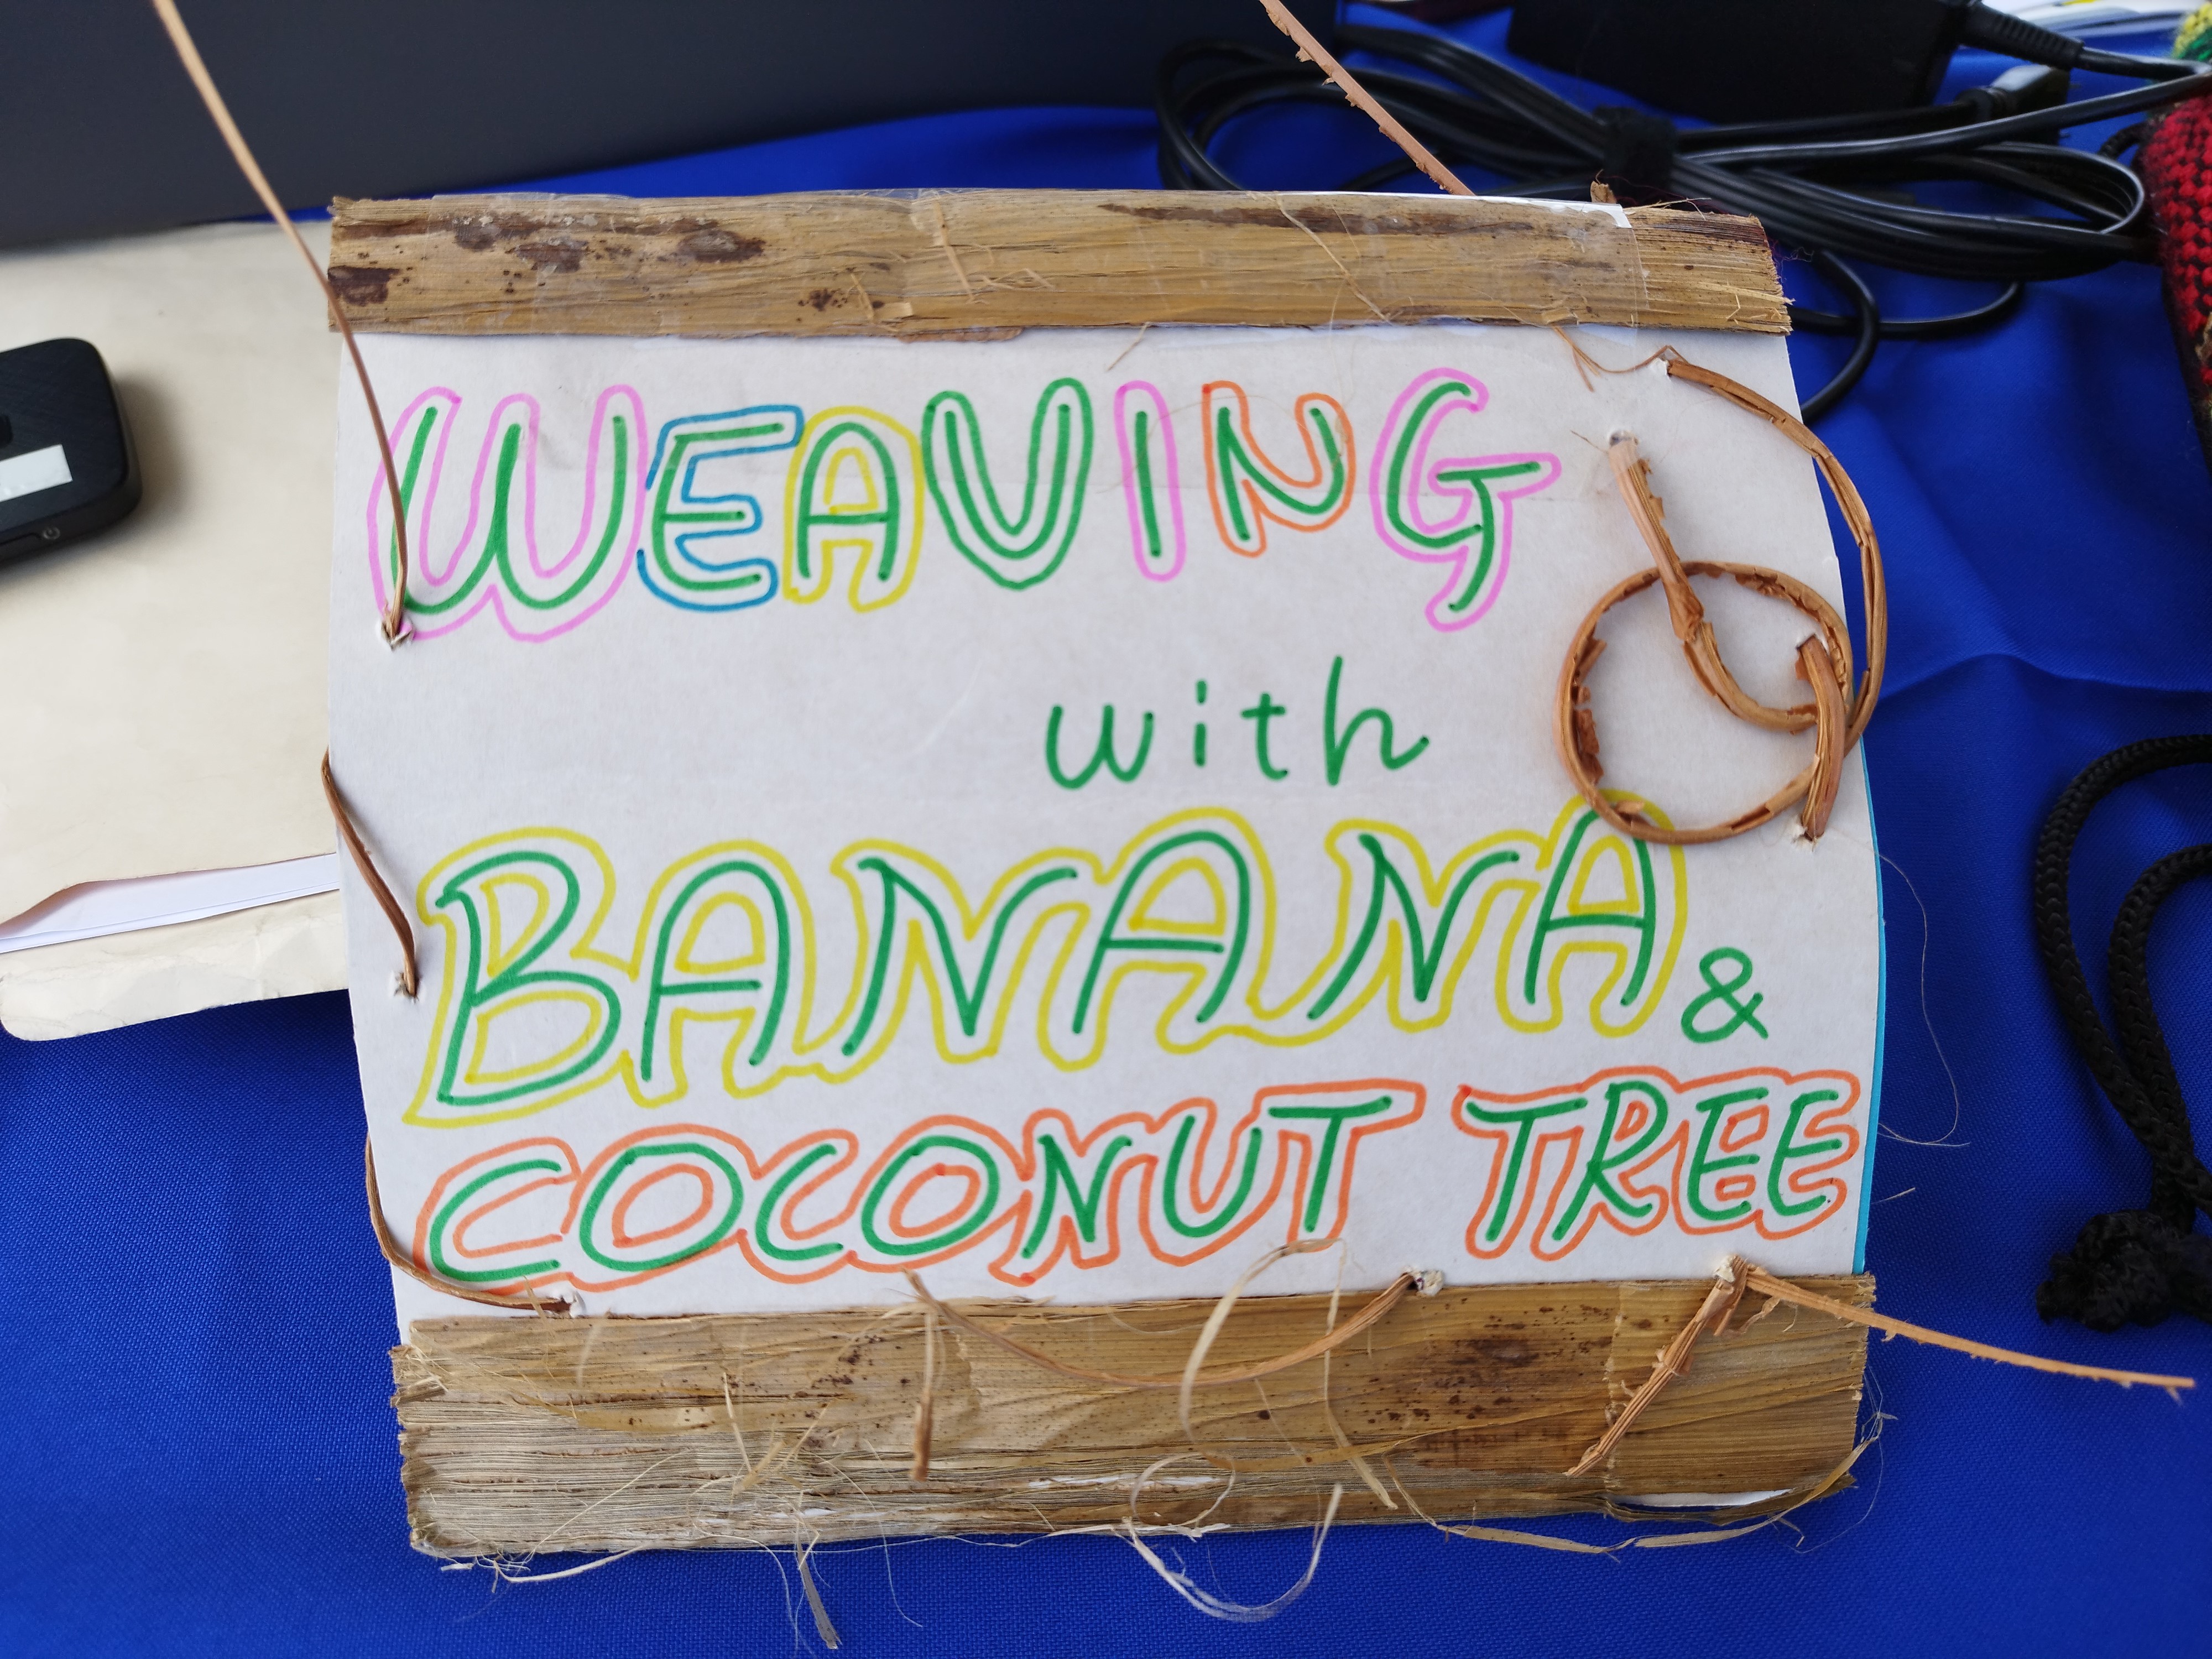 WEAVING
with
BANANA &
COCONUT TREE